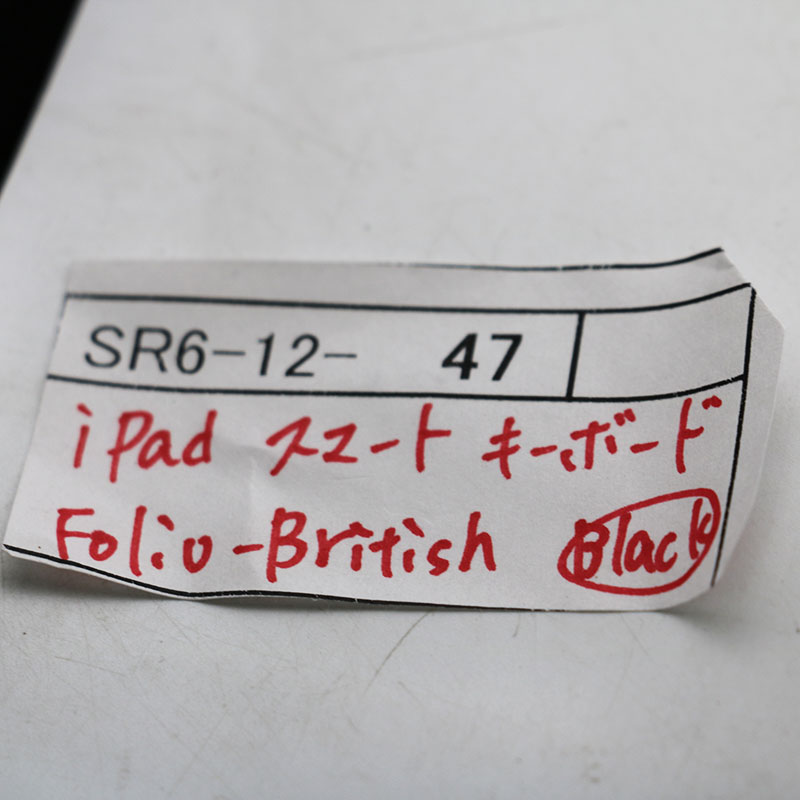 SR6-12- 47
iPad スマート キーボード
Folio-British Black